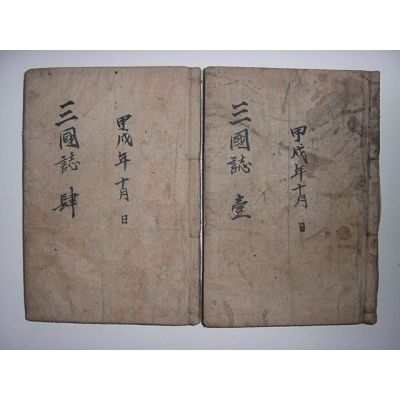 三國誌 肆
甲戌年十月 日
三國誌 壹
甲戌年十月 日